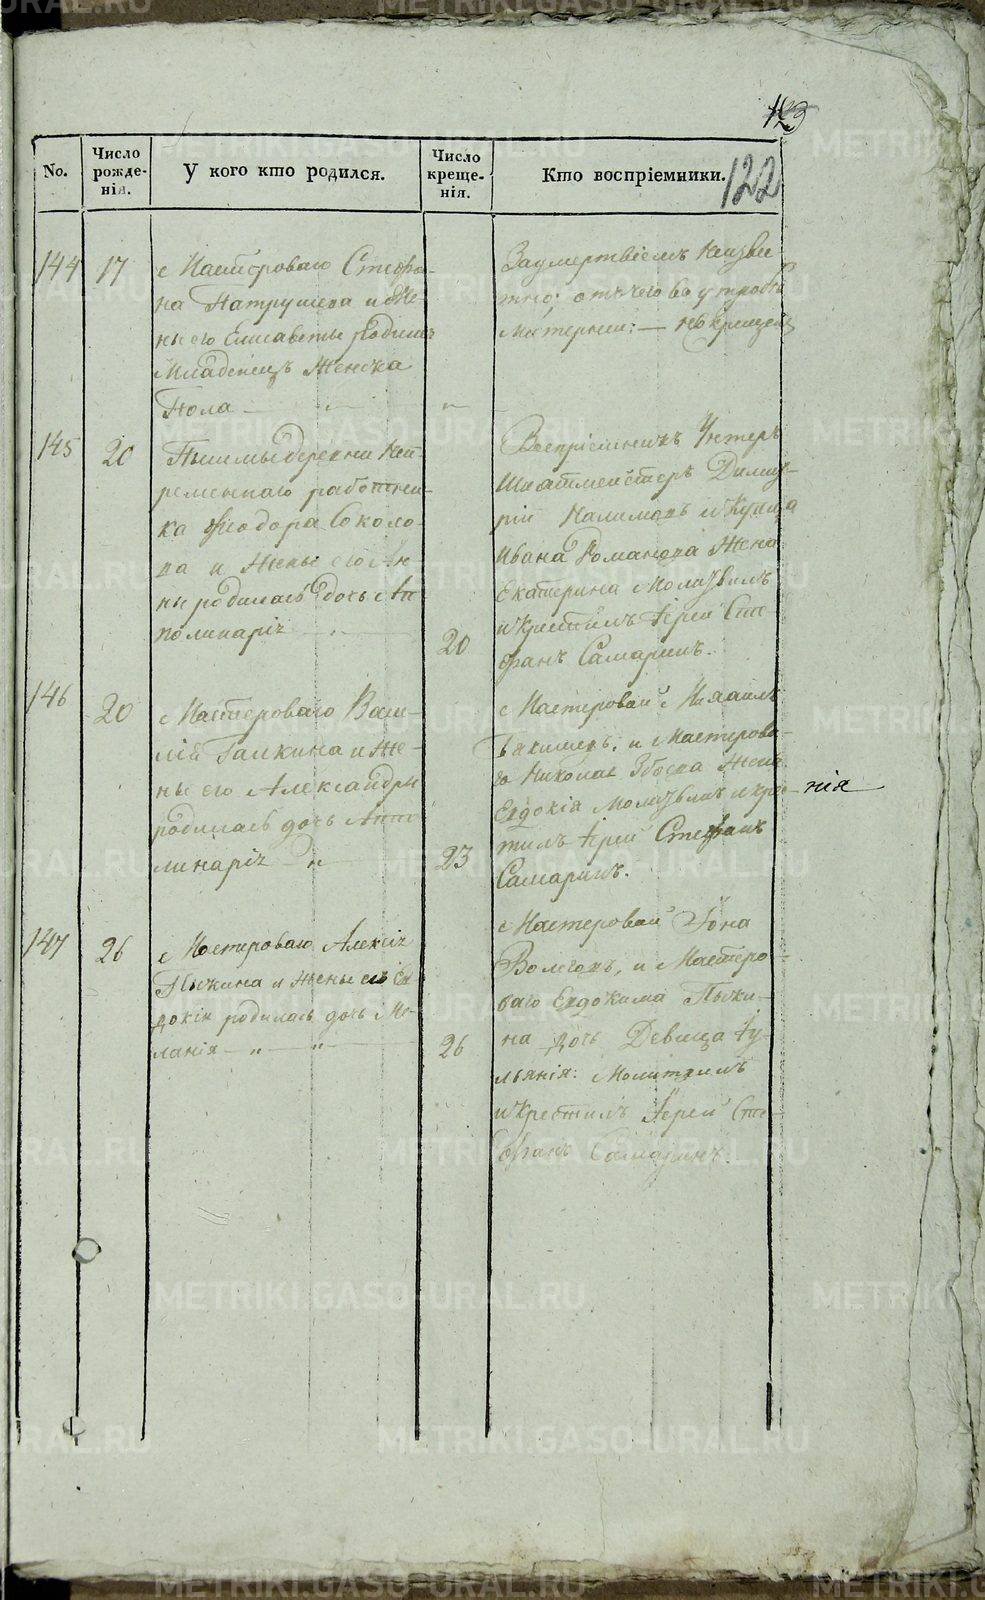 123
122
No.
Число рожде-нія.
У кого кто родился.
Число креще-нія.
Кто воспріемники.
144
17
Мастероваго Стефа-
на Патрушева и Же-
ны его Елисаветы родился
Младенецъ Женска
Пола
За умертвіемъ
отъ чего въ утробѣ
Матерней: —
145
20
Пышмы деревни
ременнаго работни-
ка Ѳеодора Соколо-
ва и Жены его Ан-
ны родилась дочь Ап
полинарія
20
Воспріемникъ Унтеръ
Шихтмейстеръ Димит-
рій и Купца
Ивана Романова Жена
Екатерина Молитвилъ
и Крестилъ Іерей Сте
фанъ Самаринъ.
146
20
Мастероваго Васи-
лія Галкина и Же-
ны его Александры
родилась дочь Апп
линарія
23
Мастеровой Михаилъ
и Мастерова-
го Николая Жена
Евдокія Молитвилъ и крес-
нія
тилъ Іерей Стефанъ
Самаринъ.
147
26
Мастероваго Алексія
Пычкина и Жены его Ев
докіи родилась дочь Ме-
ланія
26
Мастеровой Іона
Вологовъ, и Мастеро-
ваго Евдокима Пычки-
на дочь Девица Іу-
льянія: Молитвилъ
и Крестилъ Іерей Сте
фанъ Самаринъ.
METRIKI.GASO-URAL.RU